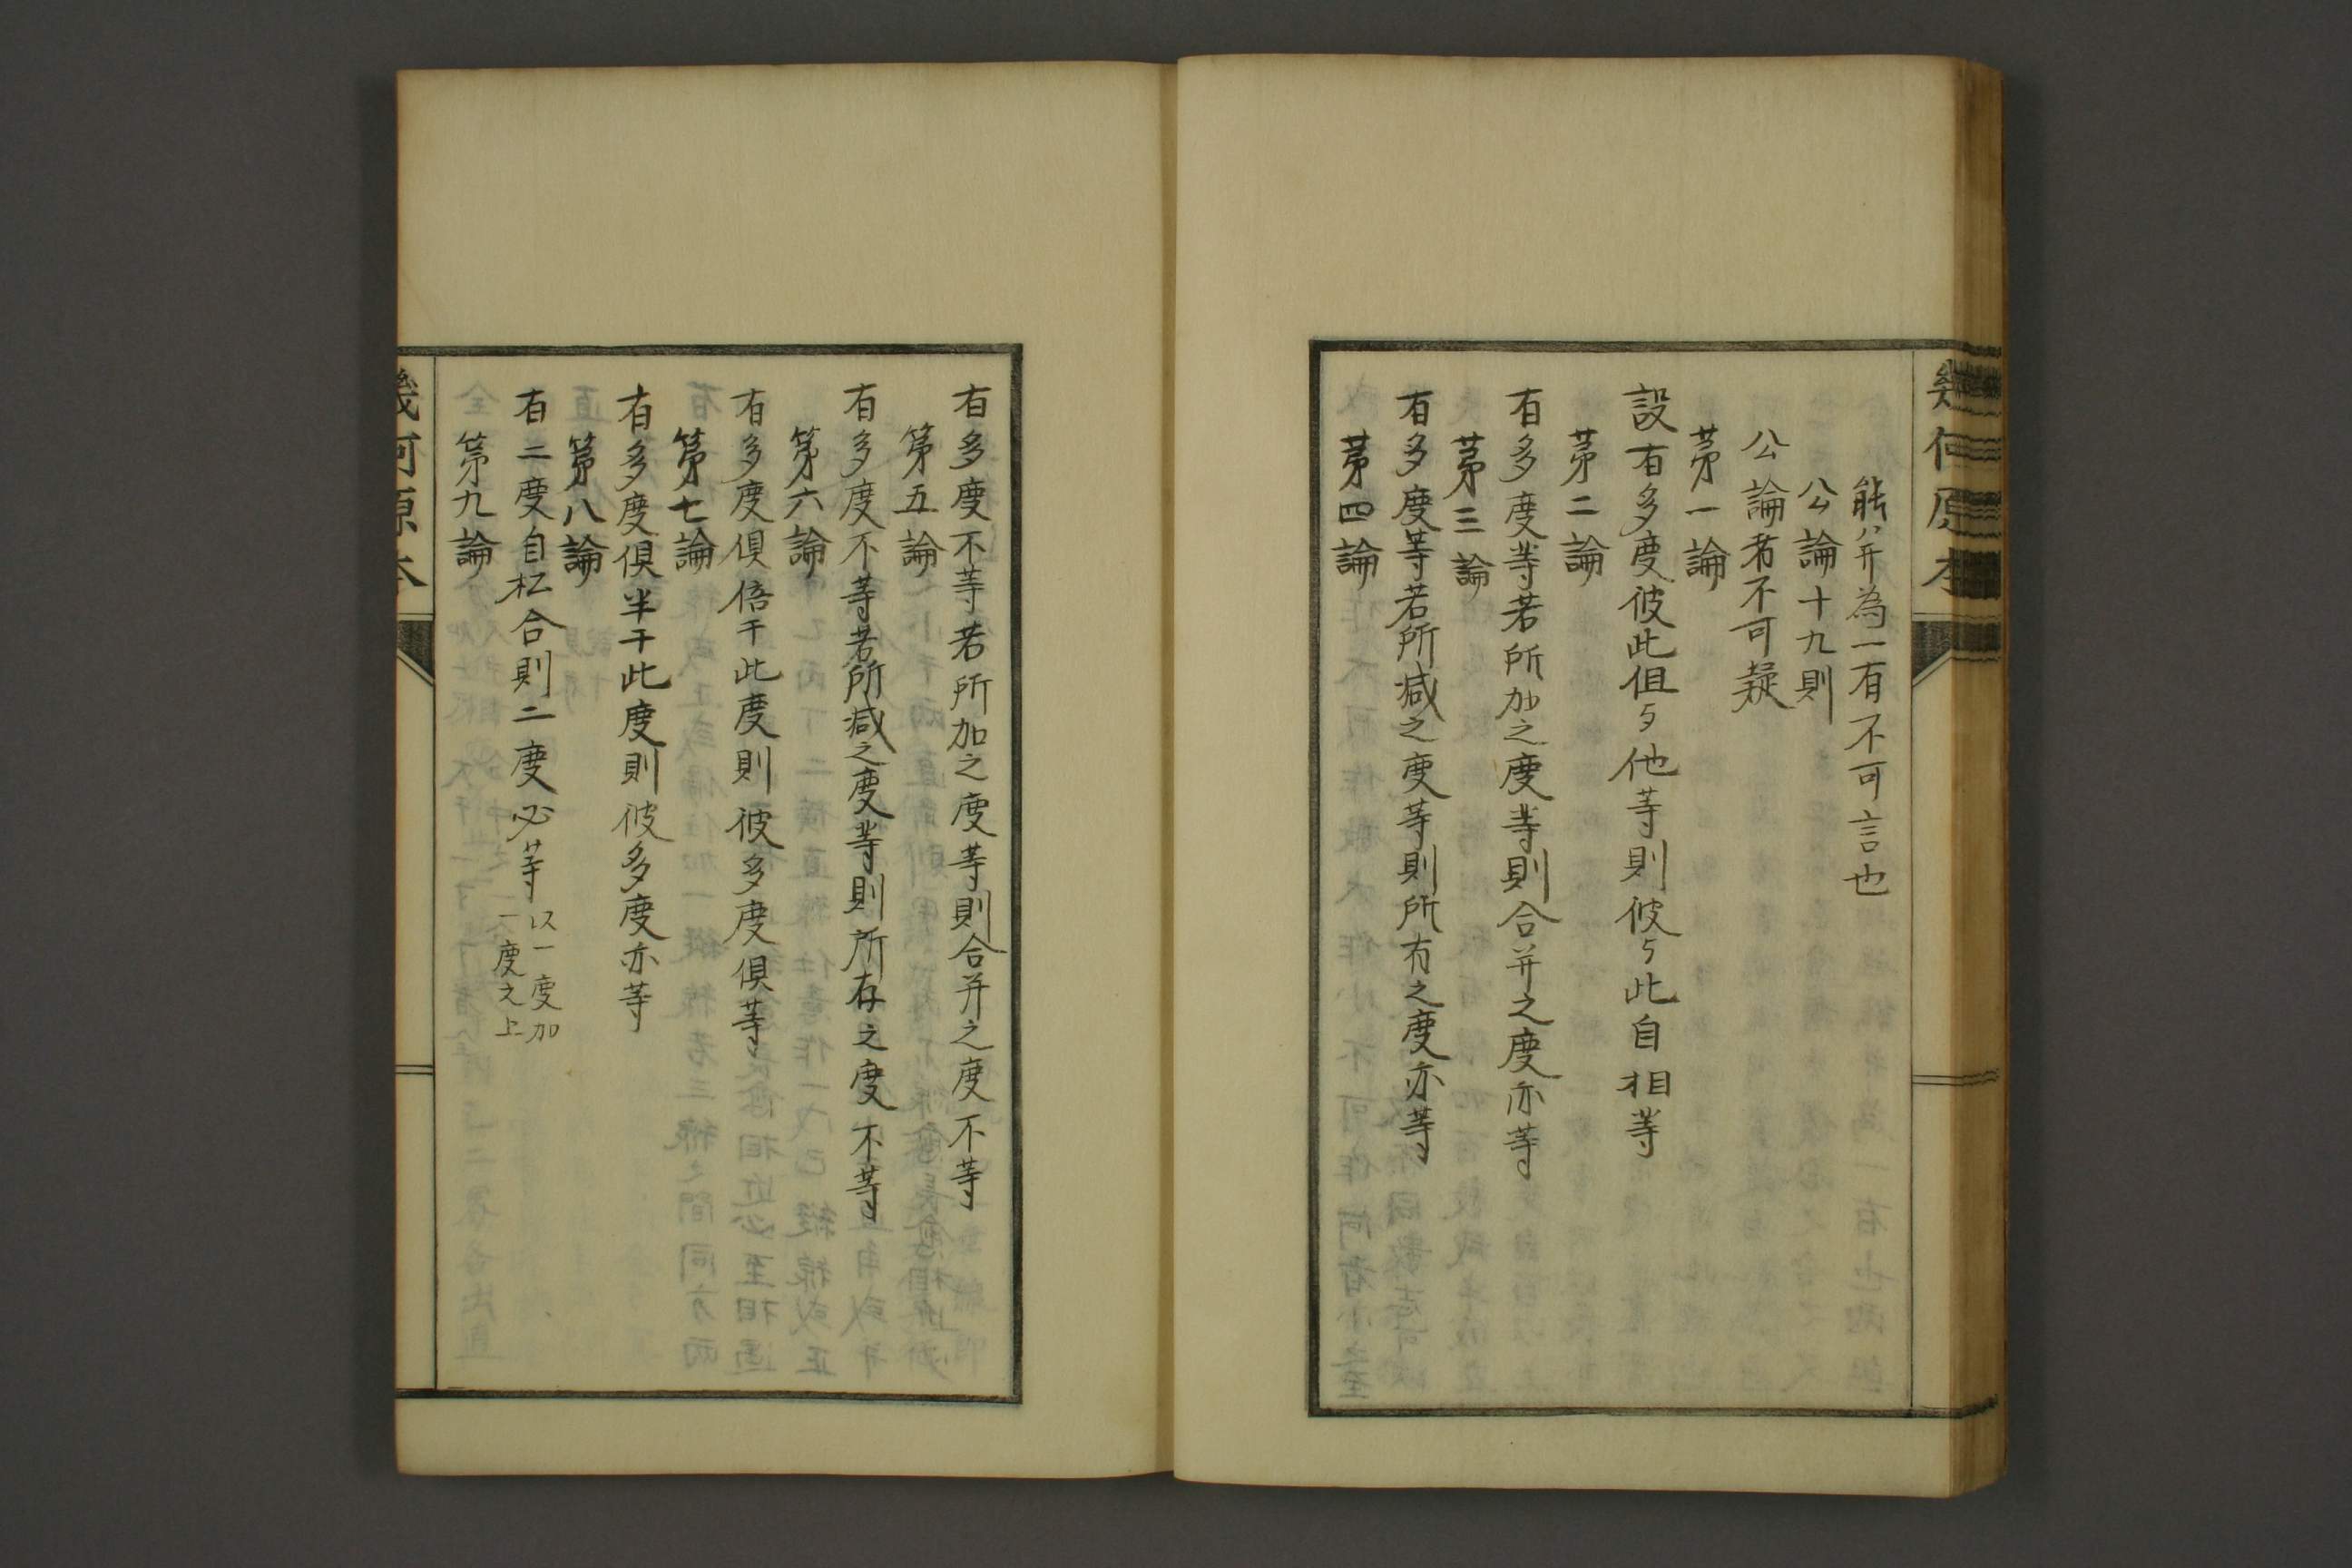 幾何原本
能以并為一有不可言也
公論十九則
公論者不可疑
第一論
設有多度彼此但与他等則彼与此自相等
第二論
有多度等若所加之度等則合并之度亦等
第三論
有多度等若所减之度等則所有之度亦等
第四論
有多度不等若所加之度等則合并之度不等
第五論
有多度不等若所减之度等則所存之度不等
第六論
有多度俱倍于此度則彼多度俱等
第七論
有多度俱半于此度則彼多度亦等
第八論
有二度自相合則二度必等
以一度加
一度之上
第九論
幾何原本